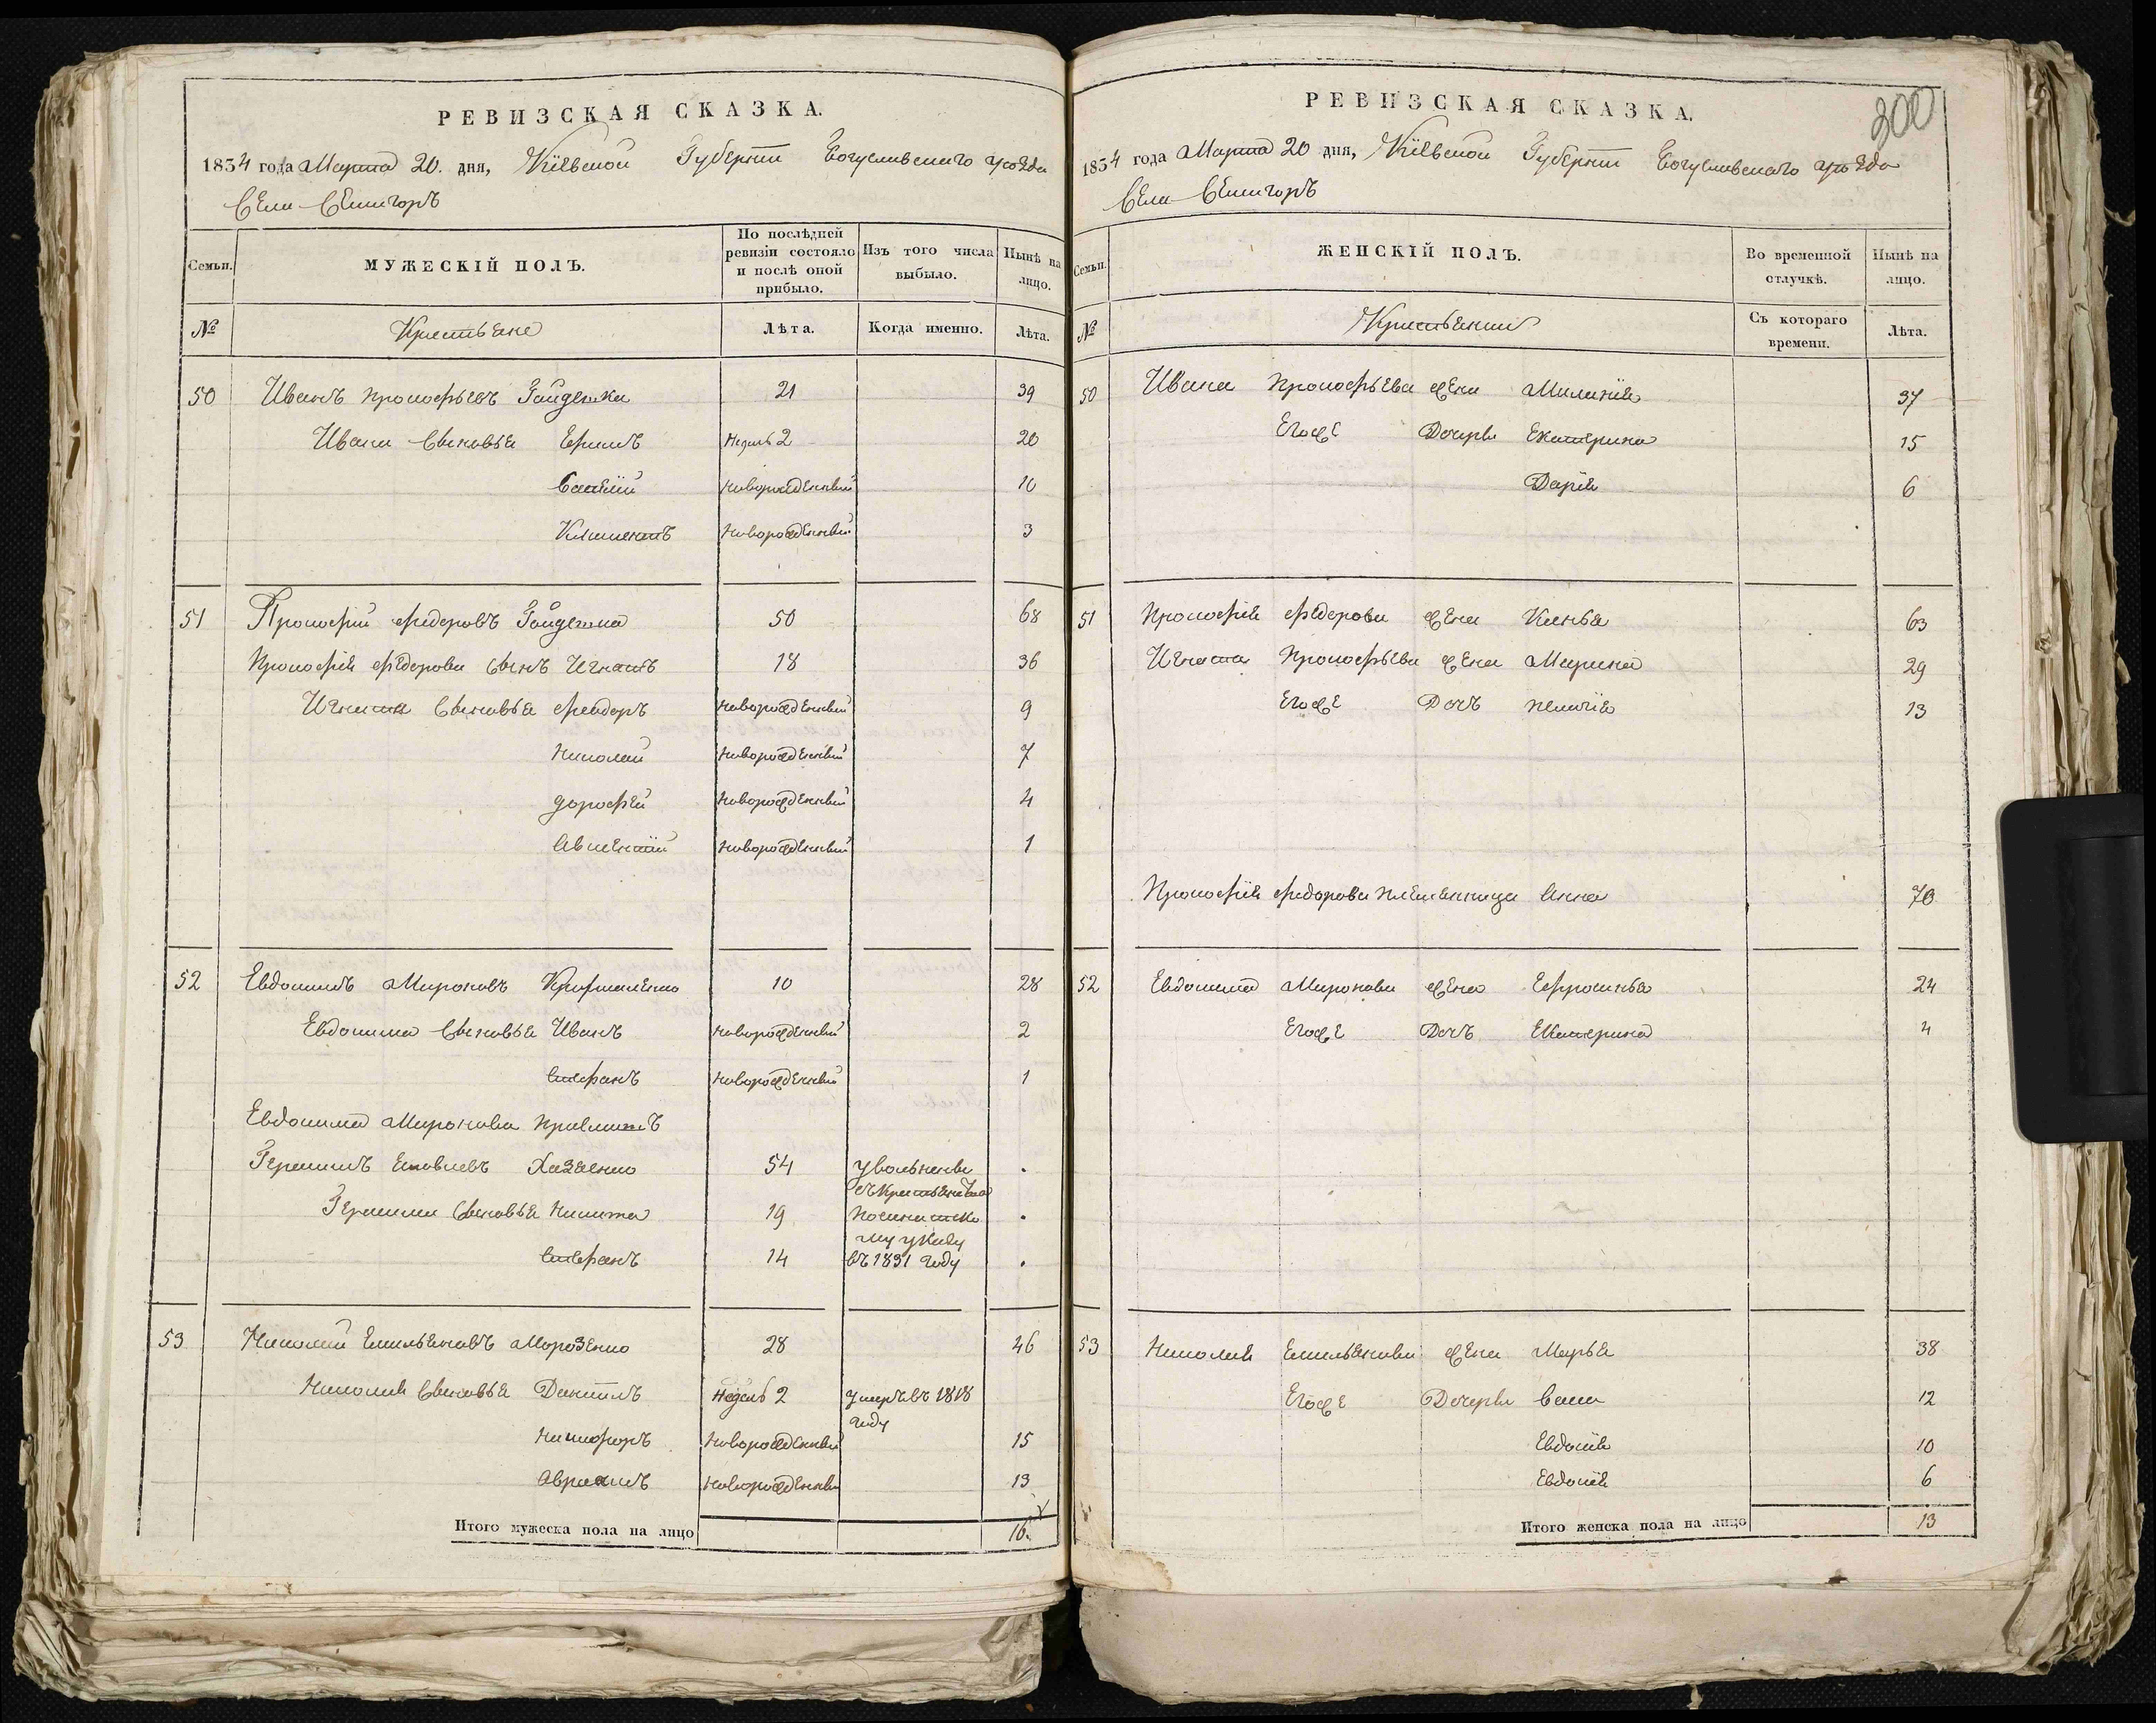 РЕВИЗСКАЯ СКАЗКА.
1834 года Марта 20. дня, Кіевской Губерніи Богуславскаго уѣзда
Села Семигоръ
Семьи. МУЖЕСКІЙ ПОЛЪ. По послѣдней ревизіи состояло и послѣ оной прибыло. Изъ того числа выбыло. Нынѣ на лицо.
№ Крестьяне Лѣта. Когда именно. Лѣта.
50 Иванъ Прокофьевъ Гайдешка 21 39
Ивана Сыновья Ефимъ недель 2 20
Василій новорожденный 10
Климентъ новорожденный 3
51 Прокофій Федоровъ 50 68
Прокофія Федорова Сынъ Игнатъ 18 36
Игната Сыновья Феодоръ новорожденный 9
Николай новорожденный 7
Дорофей новорожденный 4
Авксентій новорожденный 1
52 Евдокимъ Мироновъ 10 28
Евдокима Сыновья Иванъ новорожденный 2
Стефанъ новорожденный 1
Евдокима Миронова
Герасимъ Яковлевъ Хазяенко 54 уволены
Герасима Сыновья Никита 19
Стефанъ 14 въ 1831 году
53 Николай Емельяновъ Морозенко 28 46
Николая Сыновья Даніилъ недель 2 умеръ въ 1818
году
Никифоръ новорожденный 15
Авраамъ новорожденный 13
Итого мужеска пола на лицо 16.
РЕВИЗСКАЯ СКАЗКА.
300
1834 года Марта 20 дня, Кіевской Губерніи Богуславскаго уѣзда
Села Семигоръ
Семьи. ЖЕНСКІЙ ПОЛЪ. Во временной отлучкѣ. Нынѣ на лицо.
№ Крестьянки Съ котораго времени. Лѣта.
50 Ивана Прокофьева жена Миланія 37
Егоже Дочери Екатерина 15
Дарія 6
51 Прокофія Федорова жена Ксенья 63
Игната Прокофьева жена Марина 29
Егоже Дочь Пелагія 13
Прокофія Федорова племянница Анна 70
52 Евдокима Миронова жена Ефросинья 24
Егоже Дочь Екатерина 4
53 Николая Емельянова жена Марья 38
Егоже Дочери 12
Евдокія 10
Евдокія 6
Итого женска пола на лицо 13